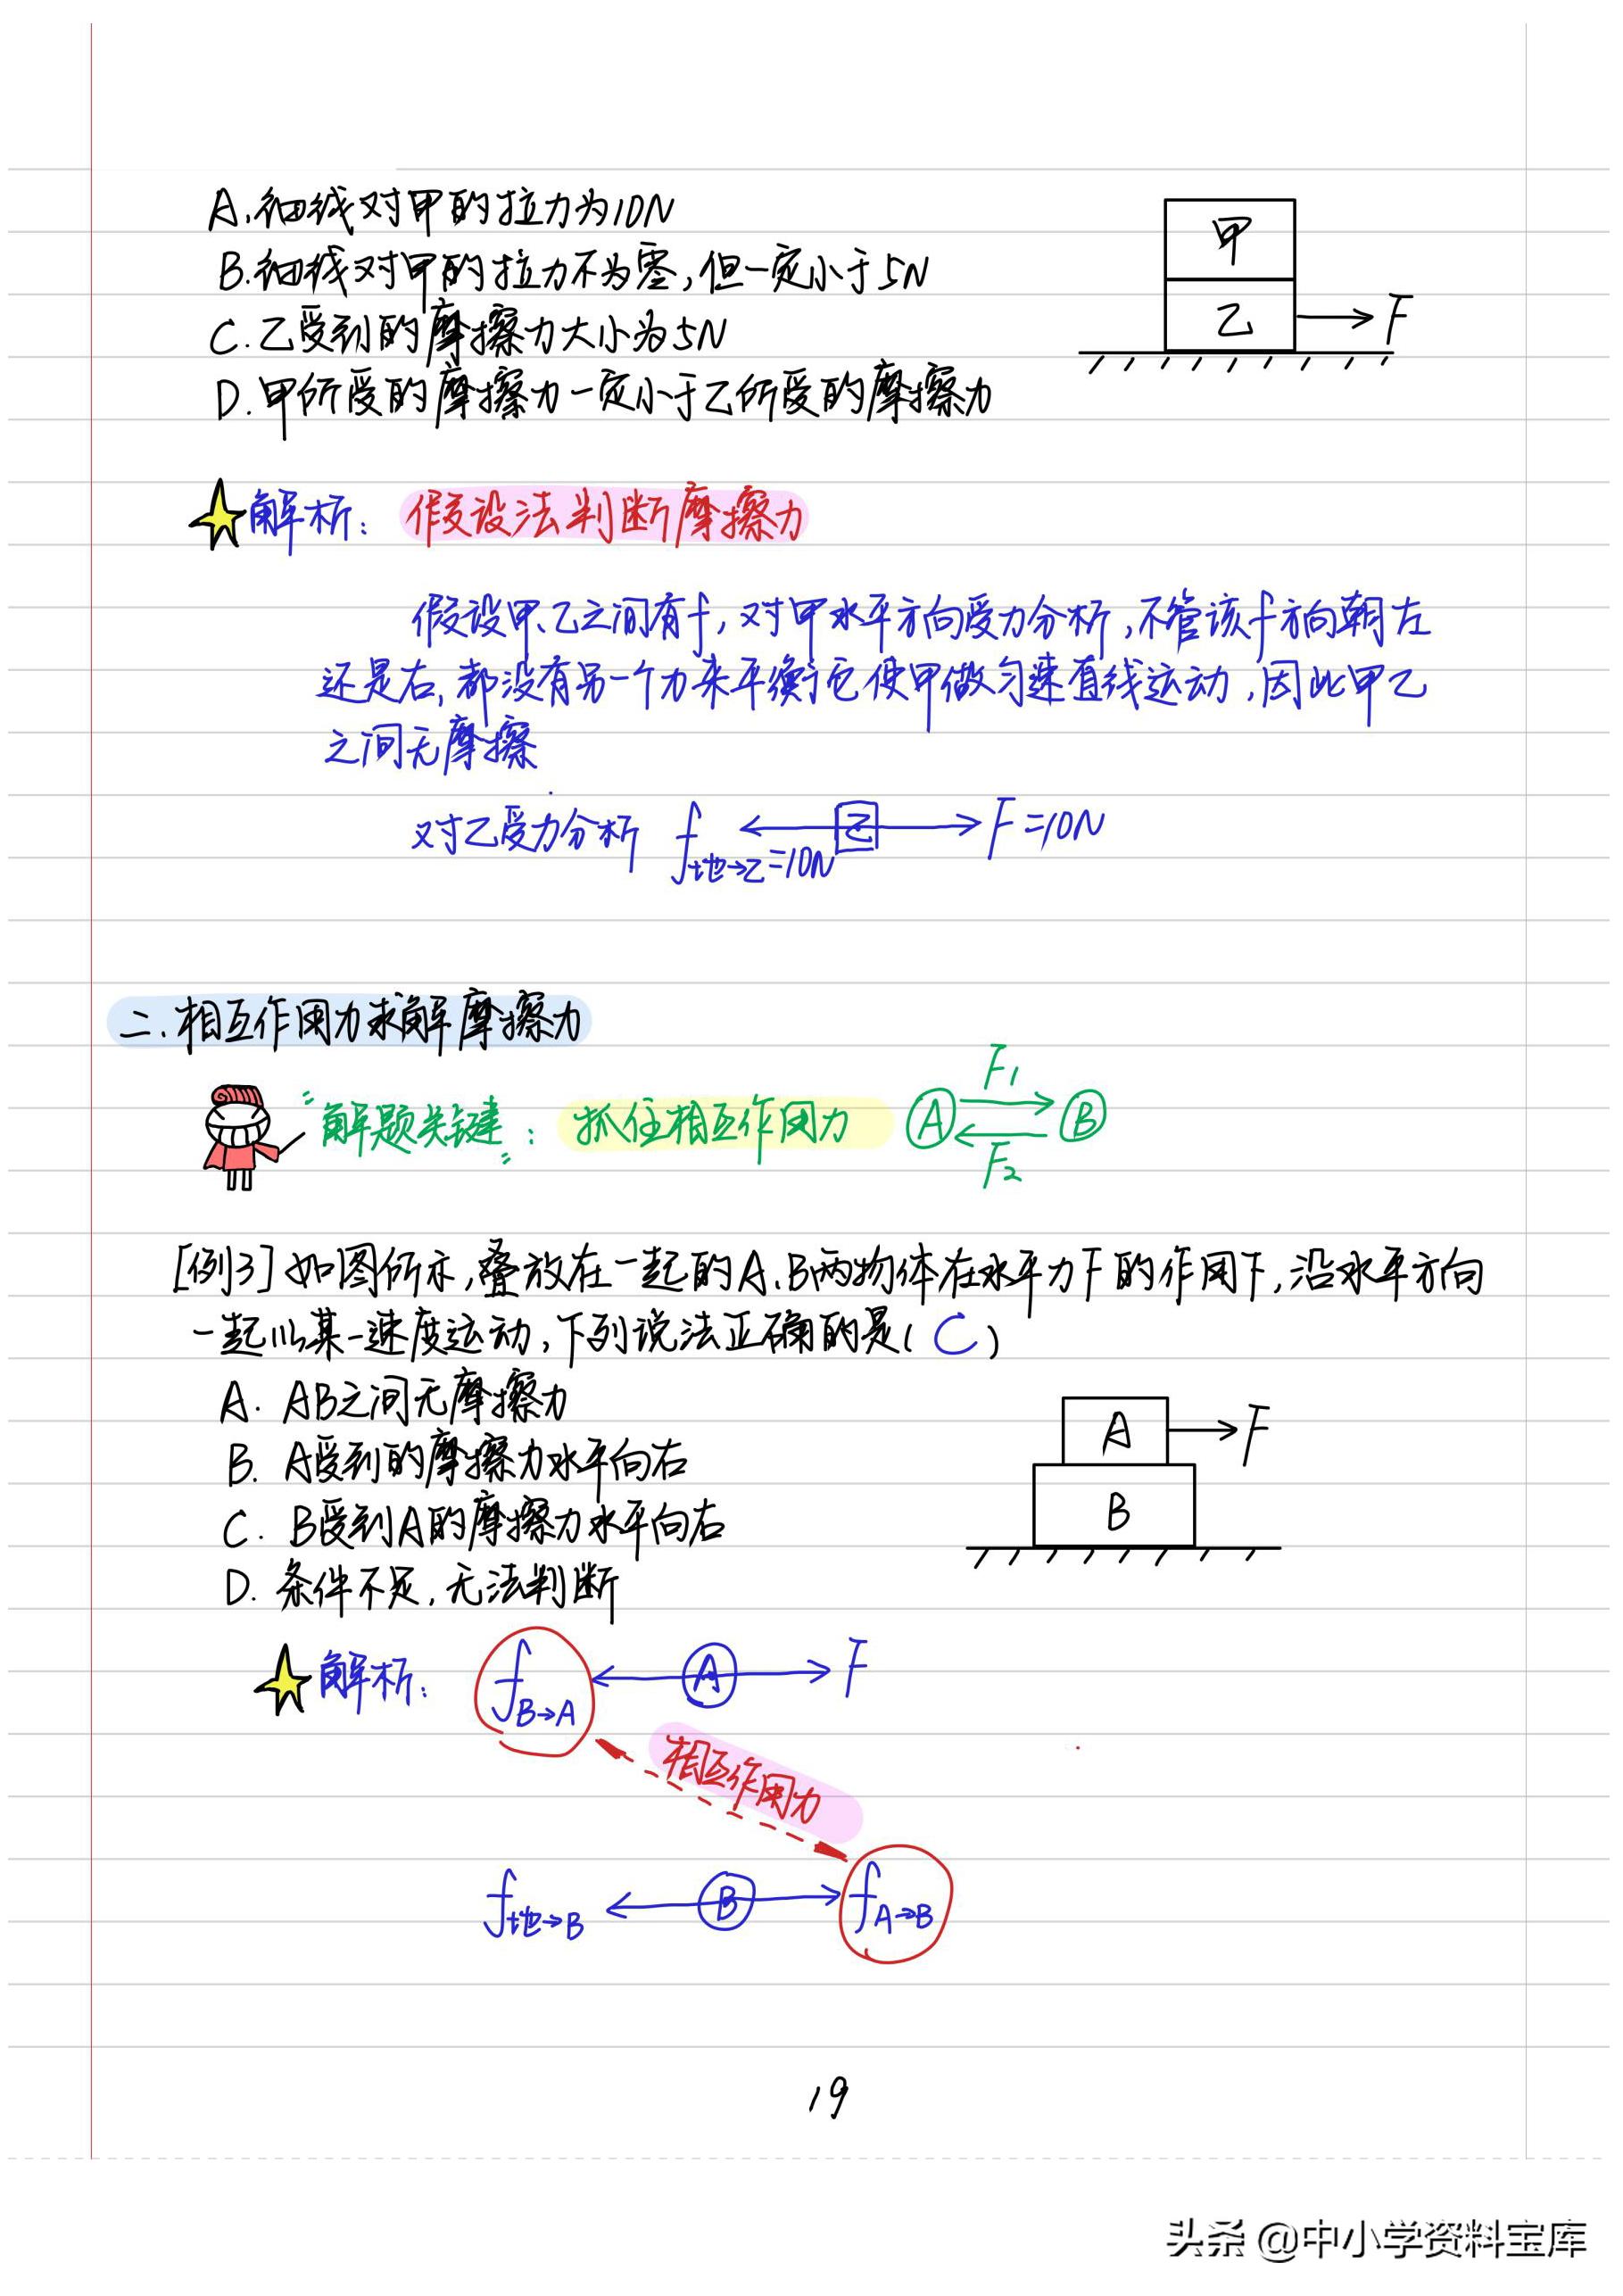 A.细线对甲的拉力为10N
B.细线对甲的拉力不为零,但一定小于5N
C.乙受到的摩擦力大小为5N
D.甲所受的摩擦力一定小于乙所受的摩擦力
甲
乙
F
解析:假设法判断摩擦力
假设甲、乙之间有f,对甲水平方向受力分析,不管该f方向朝左
还是右,都没有另一个力来平衡它使甲做匀速直线运动,因此甲乙
之间无摩擦
对乙受力分析 f地→乙=10N 乙 F=10N
二.相互作用力求解摩擦力
"解题关键":抓住相互作用力 A F₁ F₂ B
[例3]如图所示,叠放在一起的A、B两物体在水平力F的作用下,沿水平方向
一起以某一速度运动,下列说法正确的是(C)
A. AB之间无摩擦力
B. A受到的摩擦力水平向右
C. B受到A的摩擦力水平向右
D. 条件不足,无法判断
A
F
B
解析: fB→A A F
相互作用力
f地→B B fA→B
19
头条 @中小学资料宝库